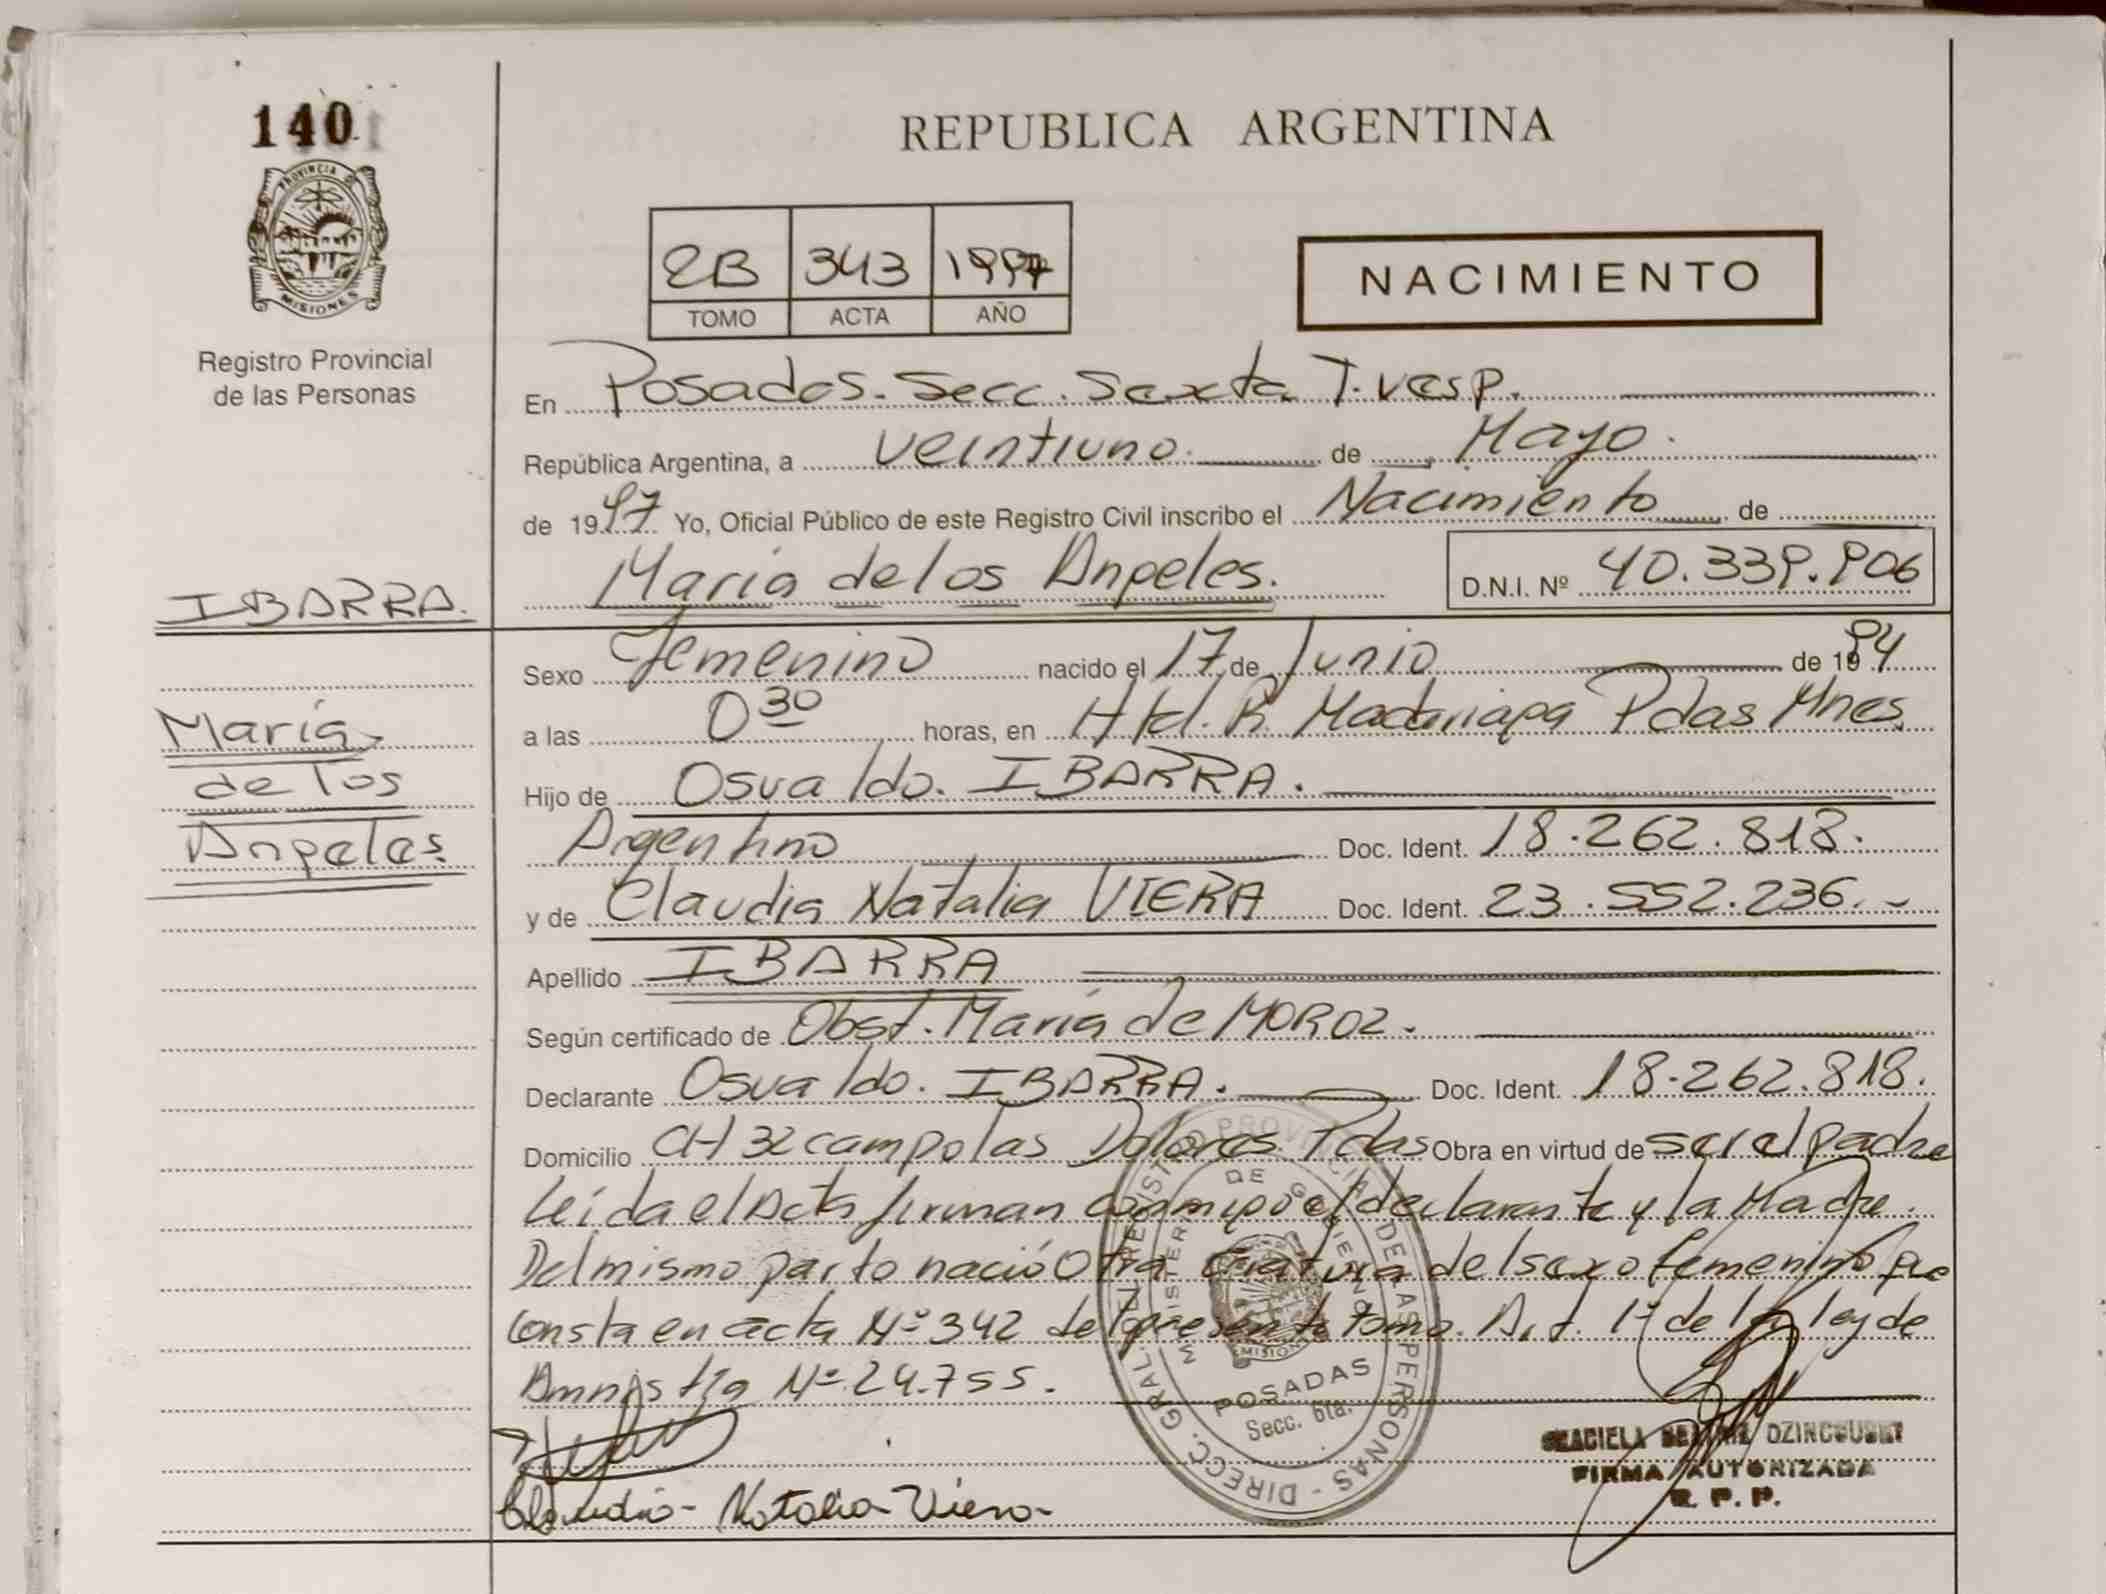 140
PROVINCIA DE
MISIONES
Registro Provincial
de las Personas
IBARRA.
María
de los
Angeles
REPUBLICA ARGENTINA
2B 343 1997
TOMO ACTA AÑO
NACIMIENTO
En Posadas. Secc. Sexta T. vesp.
República Argentina, a veintiuno. de Mayo.
de 1997 Yo, Oficial Público de este Registro Civil inscribo el Nacimiento de
María de los Angeles. D.N.I. Nº 40.339.906
Sexo Femenino nacido el 17 de Junio de 1994
a las 0 30 horas, en Htal. R. Madariaga Pdas Mnes.
Hijo de Osvaldo. IBARRA.
Argentino Doc. Ident. 18.262.818.
y de Claudia Natalia VIERA Doc. Ident. 23.552.236.-
Apellido IBARRA
Según certificado de Obst. María de MOROZ.
Declarante Osvaldo. IBARRA. Doc. Ident. 18.262.818.
Domicilio CH 32 campo las Dolores Pdas Obra en virtud de ser el padre
Leída el Acta firman conmigo el declarante y la Madre.
Del mismo parto nació Otra criatura del sexo femenino que
consta en acta Nº 342 del presente tomo. Art. 1º de la ley de
Amnistía Nº 24.755.
Claudia Natalia Viera
DIRECC. GRAL. DEL REGISTRO PROVINCIAL DE LAS PERSONAS
MINISTERIO DE GOBIERNO
MISIONES
POSADAS
Secc. 6ta.
GRACIELA BEATRIZ
FIRMA AUTORIZADA
R. P. P.